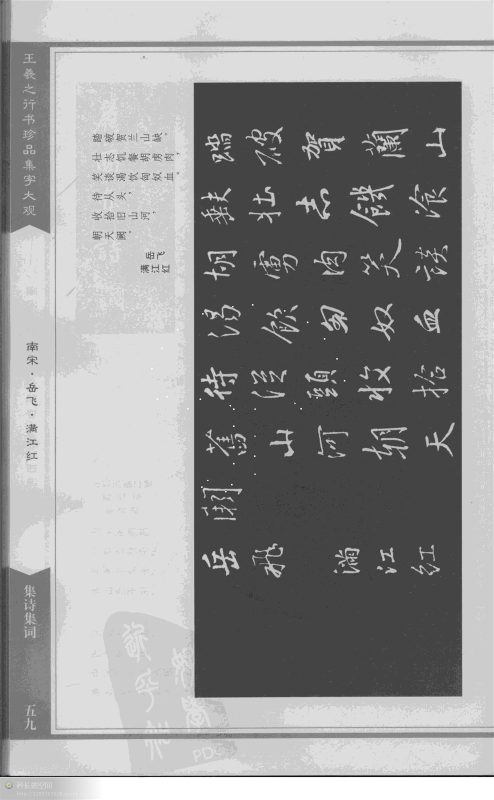 王羲之行书珍品集字大观
南宋·岳飞·满江红
集诗集词
五九
踏破贺兰山缺。
壮志饥餐胡虏肉，
笑谈渴饮匈奴血。
待从头，
收拾旧山河，
朝天阙。
岳飞
满江红
踏破賀蘭山
缺壮志饑飡
胡虜肉笑談
渴飲匈奴血
待從頭收拾
舊山河朝天
闕
岳飛 滿江紅